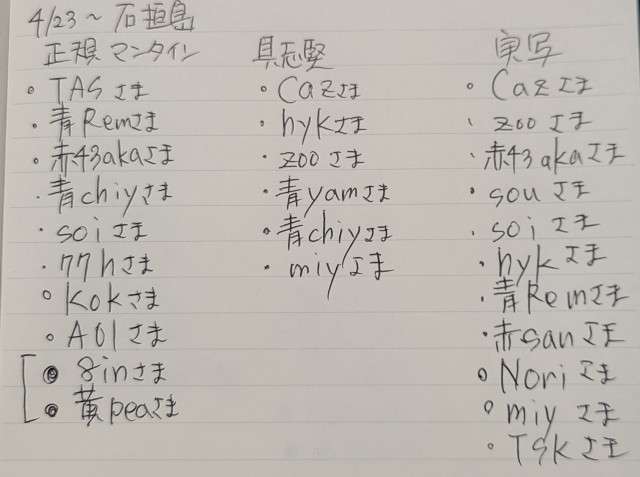 4/23～石垣島
正規マンタイン
・TASさま
・青Remさま
・赤43akaさま
・青chiyさま
・soiさま
・77hさま
・Kokさま
・AOIさま
・8inさま
・黄peaさま
具志堅
・Cazさま
・hykさま
・zooさま
・青yamさま
・青chiyさま
・miyさま
実写
・Cazさま
・zooさま
・赤43akaさま
・souさま
・soiさま
・hykさま
・青Remさま
・赤sanさま
・Noriさま
・miyさま
・TSKさま